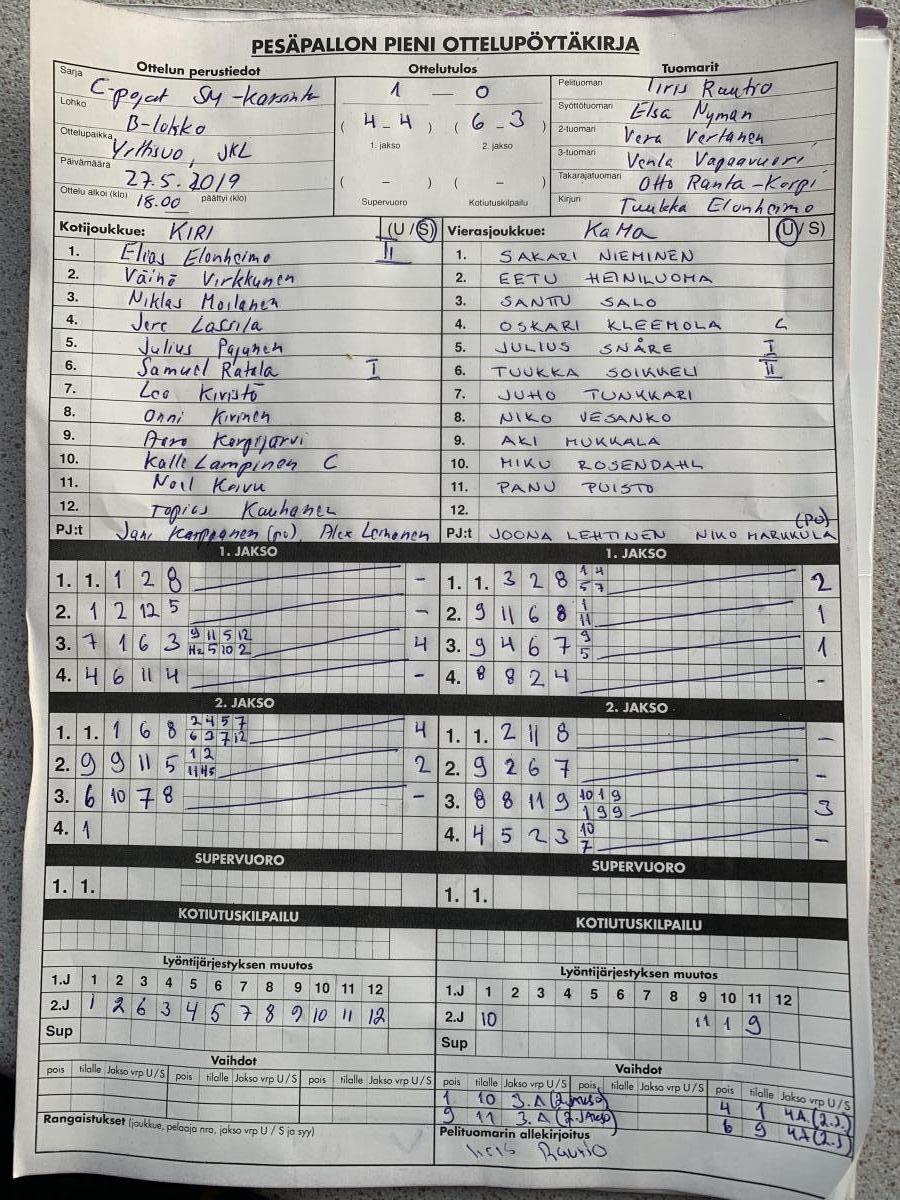 PESÄPALLON PIENI OTTELUPÖYTÄKIRJA
Ottelun perustiedot Ottelutulos Tuomarit
Sarja C-pojat SM-karsinta
Lohko B-lohko
Ottelupaikka JKL
Päivämäärä 27.5.2019
Ottelu alkoi (klo) 18.00 päättyi (klo)
1 — 0
( 4 - 4 ) ( 6 - 3 )
1. jakso 2. jakso
( – ) ( – )
Supervuoro Kotiutuskilpailu
Pelituomari Iiris Rautio
Syöttötuomari Elsa Nyman
2-tuomari Vera Vertanen
3-tuomari Venla Vapaavuori
Takarajatuomari Otto Ranta-Korpi
Kirjuri Tuukka Elonheimo
Kotijoukkue: KIRI (U / S)
1. Elias Elonheimo II
2. Väinö Virkkunen
3. Niklas Moilanen
4. Jere Lassila
5. Julius Pajunen
6. Samuel Ratala I
7. Leo Kivistö
8. Onni Kivinen
9. Aaro Korpijärvi
10. Kalle Lampinen C
11. Noil Koivu
12. Topias Kauhanen
PJ:t Jani Karppanen (po), Alex Loihonen
Vierasjoukkue: KaMa (U / S)
1. SAKARI NIEMINEN
2. EETU HEINILUOMA
3. SANTTU SALO
4. OSKARI KLEEMOLA C
5. JULIUS SNÅRE I
6. TUUKKA SOIKKELI II
7. JUHO TUNKKARI
8. NIKO VESANKO
9. AKI MUKKALA
10. MIKU ROSENDAHL
11. PANU PUISTO
12.
PJ:t JOONA LEHTINEN NIKO MARKKULA (PO)
1. JAKSO
1. 1. 1 2 8 –
2. 1 2 12 5 –
3. 7 1 6 3 9 11 5 12 4
Hz 5 10 2
4. 4 6 11 4 –
1. JAKSO
1. 1. 3 2 8 1 4 2
5 7
2. 9 11 6 8 1 1
11
3. 9 4 6 7 9 1
5
4. 8 8 2 4 -
2. JAKSO
1. 1. 1 6 8 2 4 5 7 4
6 3 7 12
2. 9 9 11 5 1 2 2
11 45
3. 6 10 7 8 –
4. 1
2. JAKSO
1. 1. 2 11 8 –
2. 9 2 6 7 –
3. 8 8 11 9 10 1 9 3
1 9 9
4. 4 5 2 3 10 –
7
SUPERVUORO
1. 1.
SUPERVUORO
1. 1.
KOTIUTUSKILPAILU
KOTIUTUSKILPAILU
Lyöntijärjestyksen muutos
1.J 1 2 3 4 5 6 7 8 9 10 11 12
2.J 1 2 6 3 4 5 7 8 9 10 11 12
Sup
Lyöntijärjestyksen muutos
1.J 1 2 3 4 5 6 7 8 9 10 11 12
2.J 10 11 1 9
Sup
Vaihdot
pois tilalle Jakso vrp U / S pois tilalle Jakso vrp U / S pois tilalle Jakso vrp U / S
Rangaistukset (joukkue, pelaaja nro, jakso vrp U / S ja syy)
Vaihdot
pois tilalle Jakso vrp U / S pois tilalle Jakso vrp U / S pois tilalle Jakso vrp U / S
1 10 3. A (2. JAKSO) 4 1 4A (2.J.)
9 11 3. A (2. JAKSO) 6 9 4A (2.J)
Pelituomarin allekirjoitus
Iiris Rautio